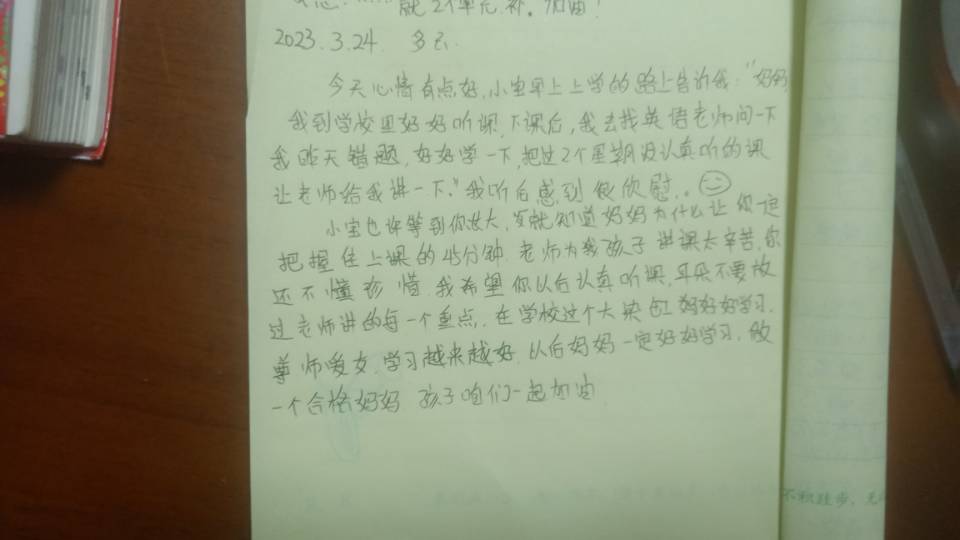 就2个单元补。加油!
2023.3.24. 多云.
今天心情有点好,小宝早上上学的路上告诉我:"妈妈
我到学校里好好听课,下课后,我去找英语老师问一下
我昨天错题,好好学一下,把过2个星期没认真听的课
让老师给我讲一下。"我听后感到很欣慰..
小宝也许等到你长大,就知道妈妈为什么让你一定
把握住上课的45分钟.老师为我孩子讲课太辛苦,你
还不懂珍惜.我希望你以后认真听课,耳朵不要放
过老师讲的每一个重点.在学校这个大染缸好好学习.
尊师爱友.学习越来越好.以后妈妈一定好好学习,做
一个合格妈妈 孩子咱们一起加油
不积跬步,无